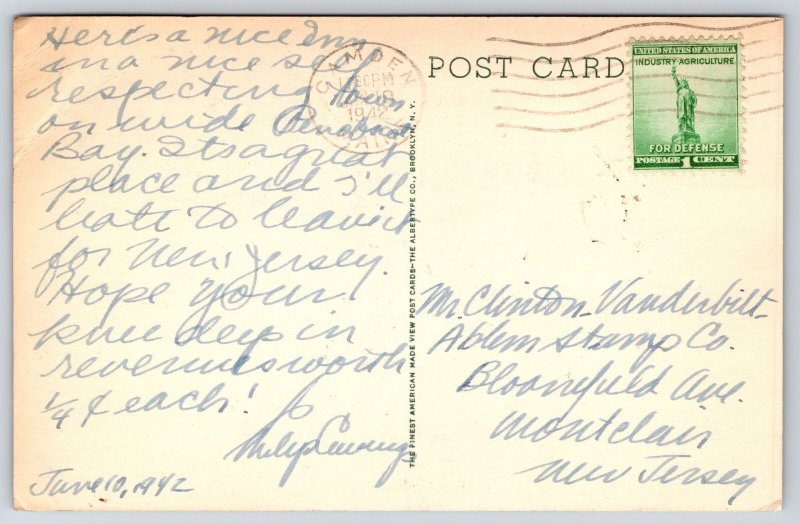 Here's a nice Inn
in a nice self
respecting town
on wide Penobscot
Bay. Its a great
place and I'll
hate to leave it
for New Jersey.
Hope your
knee deep in
revenues worth
¼ ¢ each!
Philip
June 10, 1942
CAMDEN
PM
1942
MAINE
POST CARD
THE FINEST AMERICAN MADE VIEW POST CARDS—THE ALBERTYPE CO., BROOKLYN, N.Y.
UNITED STATES OF AMERICA
INDUSTRY-AGRICULTURE
FOR DEFENSE
POSTAGE 1 CENT
Mr. Clinton Vanderbilt
Stamp Co.
Bloomfield Ave.
Montclair
New Jersey